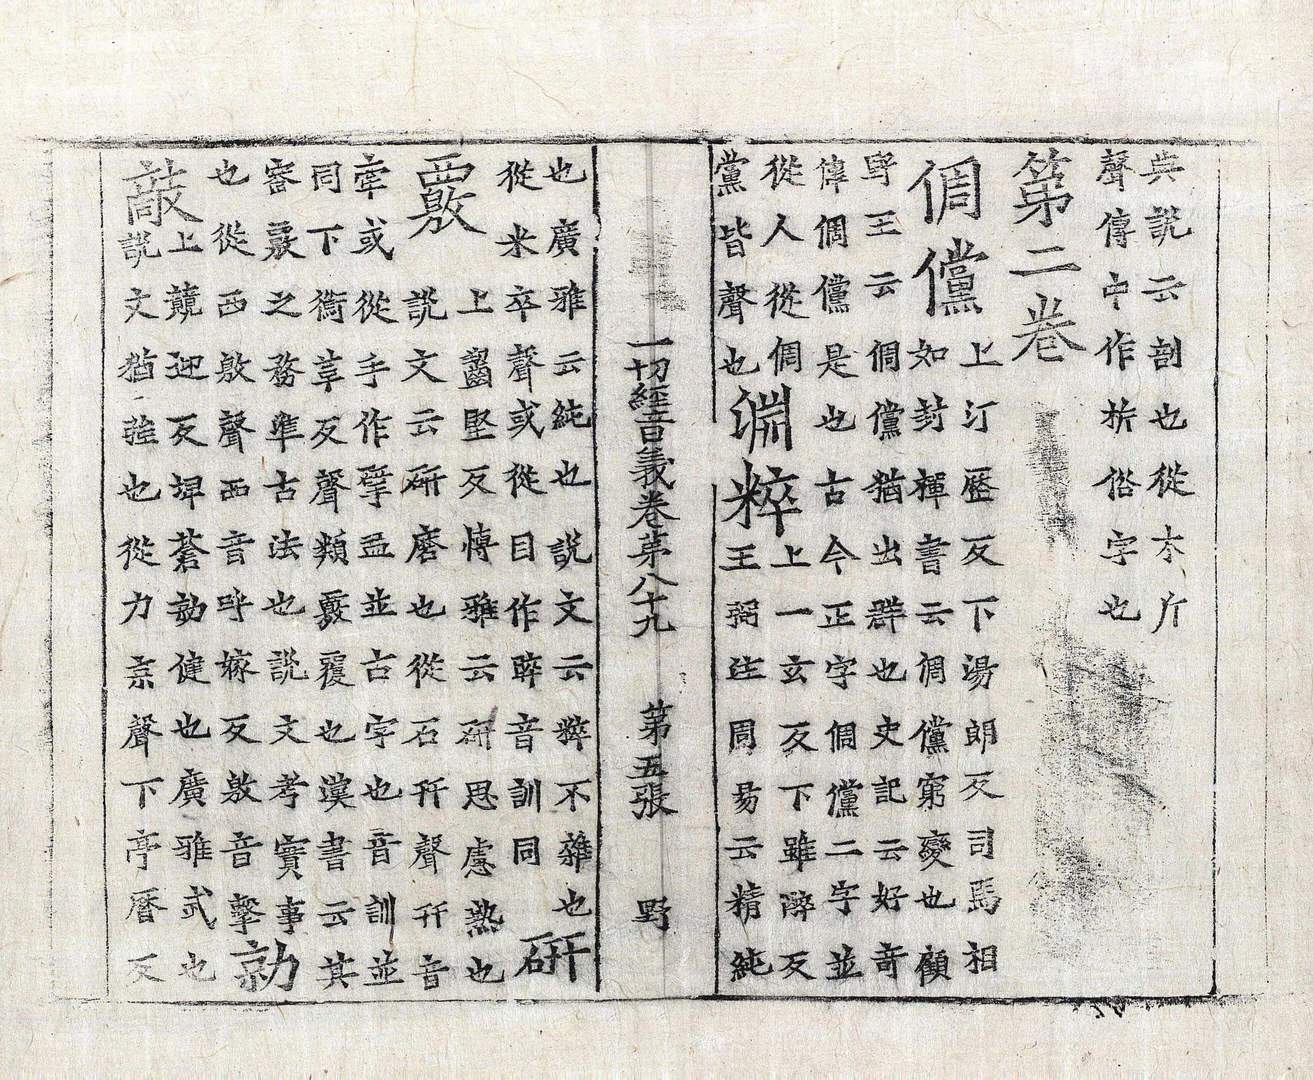 典說云剖也從木斤
聲傳中作枿俗字也
第二卷
倜儻
上汀歷反下湯朗反司馬相
如封禪書云倜儻窮變也顧
野王云倜儻猶出群也史記云好奇
偉倜儻是也古今正字倜儻二字並
從人從倜
黨皆聲也
淵粹
上一玄反下雖醉反
王弼注周易云精純
一切經音義卷第八十九 第五張 野
也廣雅云純也說文云粹不雜也
從米卒聲或從目作睟音訓同
研
上齧堅反博雅云研思慮熟也
覈
說文云研磨也從石幵聲幵音
牽或從手作揅並古字也音訓並
同下衡革反聲類覈覆也漢書云其
審覈之務準古法也說文考實事
也從襾敫聲襾音呼嫁反敫音擊
勍
敵
上競迎反埤蒼勍健也廣雅武也
說文猶強也從力京聲下亭曆反